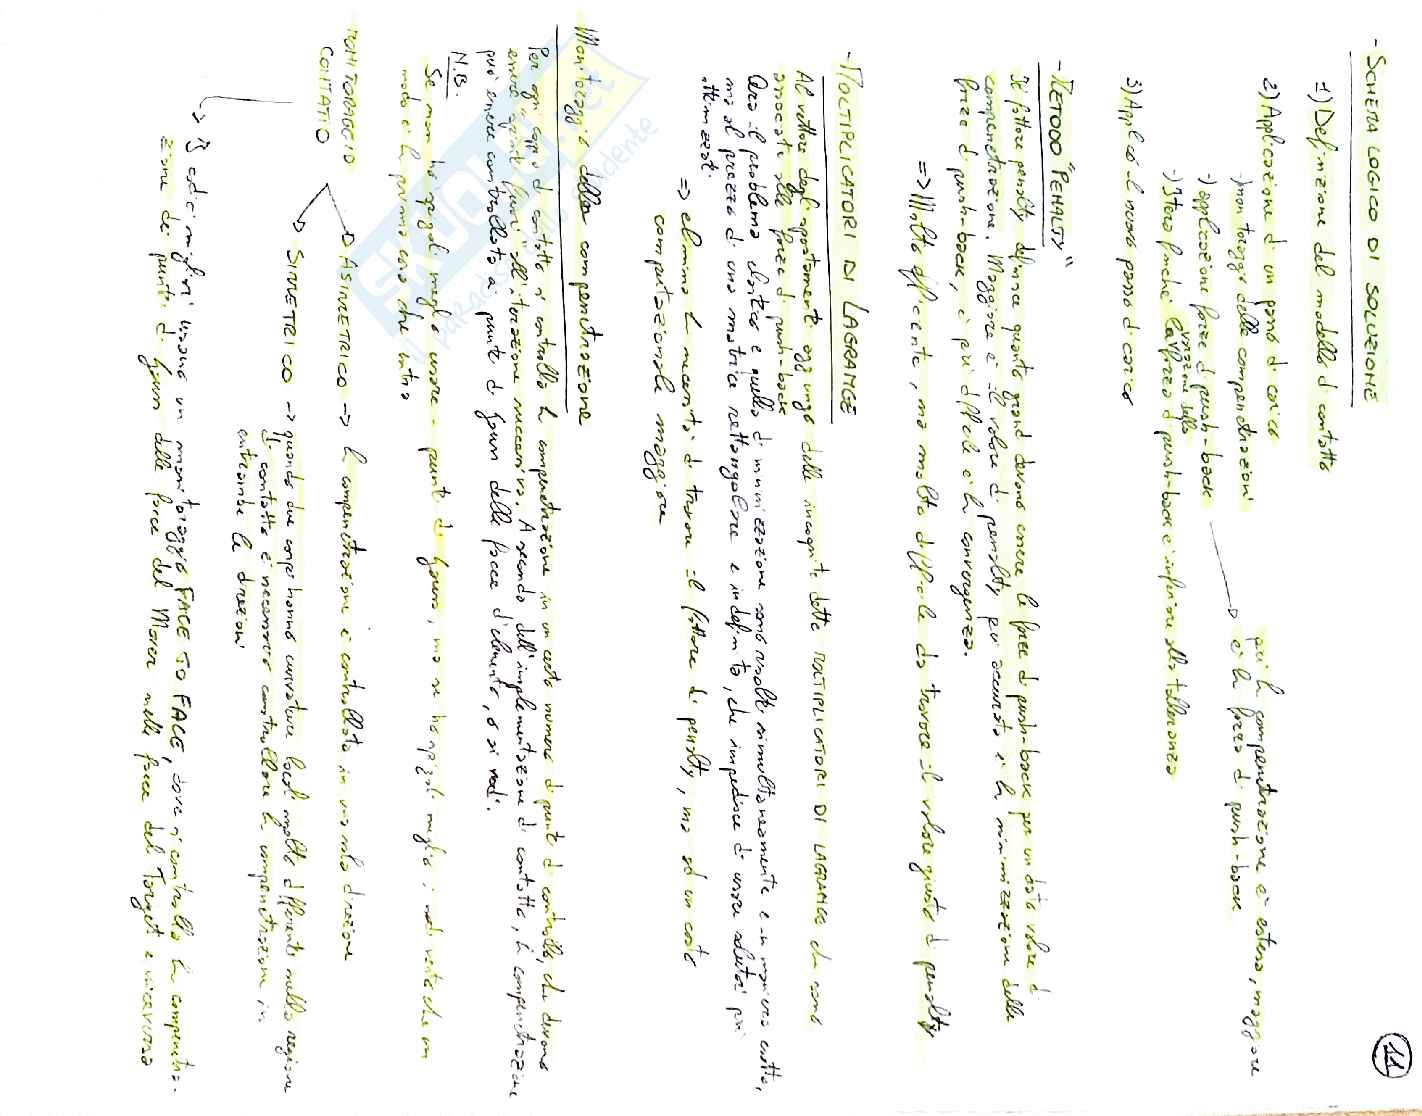 11
- SCHEMA LOGICO DI SOLUZIONE
1) Definizione del modello di contatto
2) Applicazione di un passo di carico
-) monitoraggio delle compenetrazioni
-) applicazione forze di push-back
più la compenetrazione è estesa, maggiore
è la forza di push-back
-) Itero finché la variazione della forza di push-back è inferiore alla tolleranza
3) Applico il nuovo passo di carico
- METODO "PENALTY"
Il fattore penalty definisce quanto grandi devono essere le forze di push-back per un dato valore di
compenetrazione. Maggiore è il valore di penalty più accurata è la minimizzazione delle
forze di push-back, e più difficile è la convergenza.
=> Molto efficiente, ma molto difficile da trovare il valore giusto di penalty
- MOLTIPLICATORI DI LAGRANGE
Al vettore degli spostamenti aggiungo delle incognite dette MOLTIPLICATORI DI LAGRANGE che sono
associate alle forze di push-back
Ora il problema elastico e quello di minimizzazione sono risolti simultaneamente e in maniera esatta,
ma al prezzo di una matrice rettangolare e indefinita, che impedisce di usare solutori più
ottimizzati
=> elimino la necessità di trovare il fattore di penalty, ma ad un costo
computazionale maggiore
Monitoraggio della compenetrazione
Per ogni coppia di contatto si controlla la compenetrazione in un certo numero di punti di controllo, che devono
essere quindi fuori all'iterazione successiva. A seconda dell'implementazione di contatto, la compenetrazione
può essere controllata ai punti di Gauss delle facce d'elemento, o ai nodi.
N.B.
Se non ho spigoli meglio usare i punti di Gauss, ma se ho spigoli meglio i nodi visto che un
nodo è la prima cosa che entra
MONITORAGGIO
CONTATTO
ASIMMETRICO -> la compenetrazione è controllata in una sola direzione
SIMMETRICO -> quando due corpi hanno curvature locali molto differenti nella regione
di contatto è necessario controllare la compenetrazione in
entrambe le direzioni
I codici migliori usano un monitoraggio FACE TO FACE, dove si controlla la compenetra-
zione dei punti di Gauss delle facce del Master nelle facce del Target e viceversa
SKUOLA.net
il paradiso dello studente